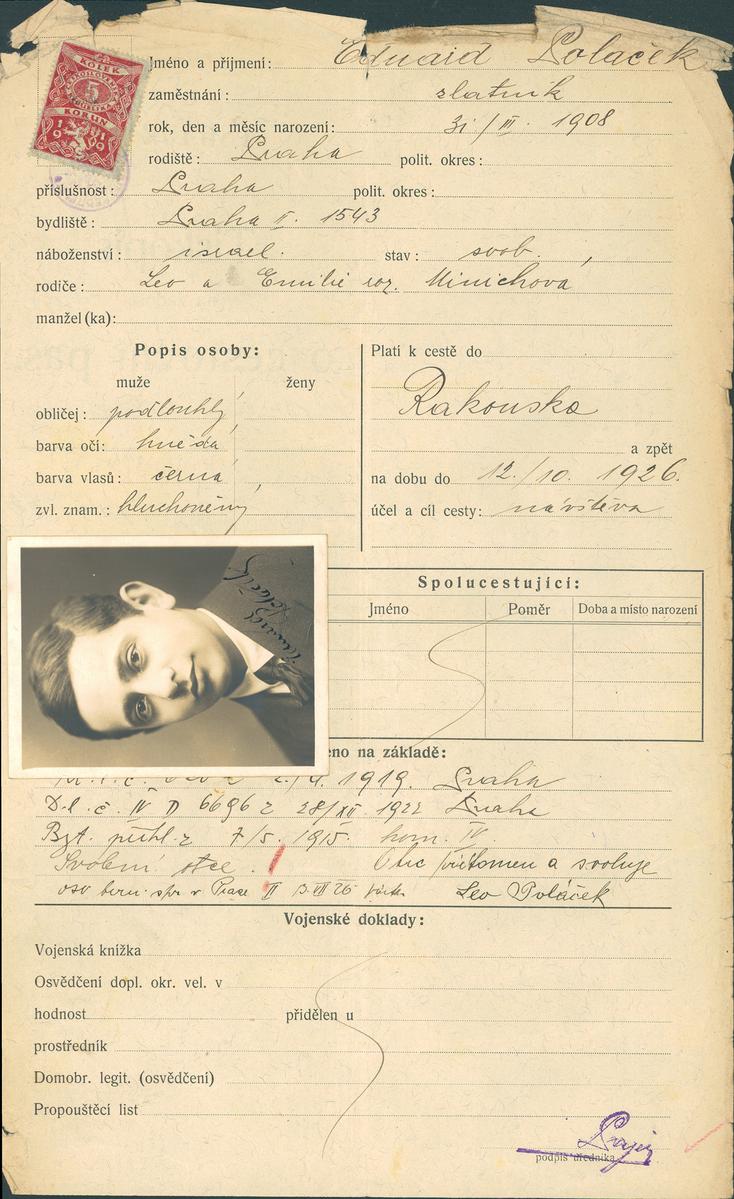 KOLEK
ČESKOSLOVENSKÁ
5
REPUBLIKA
KORUN
1919
Jméno a příjmení: Eduard Poláček
zaměstnání: zlatník
rok, den a měsíc narození: 31/III. 1908
rodiště: Praha polit. okres:
příslušnost: Praha polit. okres:
bydliště: Praha II. 1543
náboženství: israel. stav: svob.
rodiče: Leo a Emilie roz. Minichová
manžel (ka):
Popis osoby:
muže ženy
obličej: podlouhlý
barva očí: hnědá
barva vlasů: černá
zvl. znam.: hluchoněmý
Platí k cestě do
Rakouska
a zpět
na dobu do 12./10. 1926.
účel a cíl cesty: návštěva
Spolucestující:
Jméno Poměr Doba a místo narození
eno na základě:
1919. Praha
D.l. č. IV D 6696 z 28/XII 1922 Praha
přihl. z 7/5. 1915. kom. IV.
Svolení otce. Otec přítomen a svoluje
v Praze II 26 Leo Poláček
Vojenské doklady:
Vojenská knížka
Osvědčení dopl. okr. vel. v
hodnost přidělen u
prostředník
Domobr. legit. (osvědčení)
Propouštěcí list
podpis úředníka